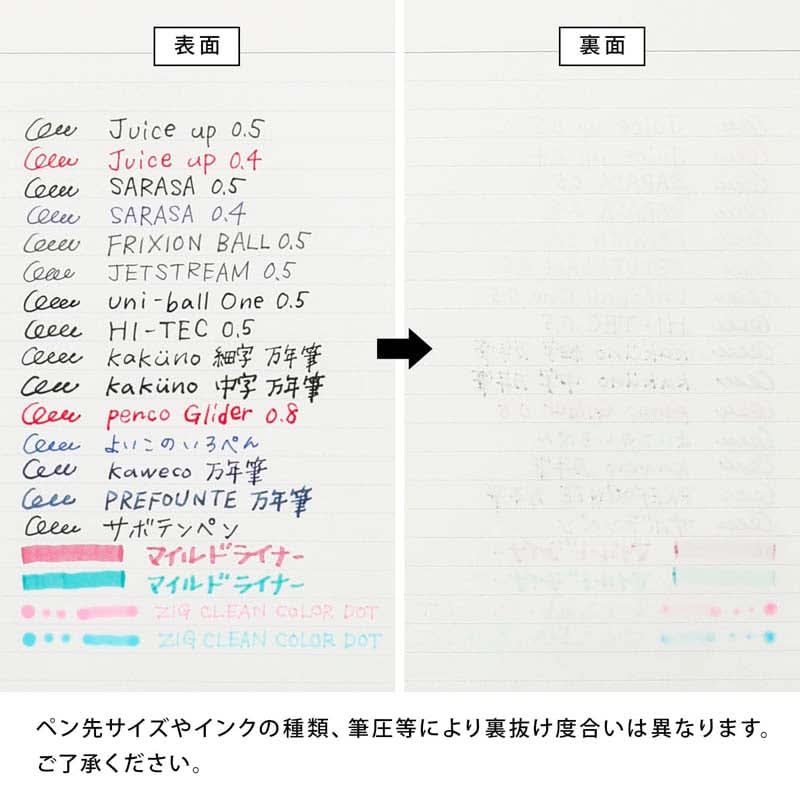 表面
Juice up 0.5
Juice up 0.4
SARASA 0.5
SARASA 0.4
FRIXION BALL 0.5
JETSTREAM 0.5
uni-ball One 0.5
HI-TEC 0.5
kaküno 細字 万年筆
kaküno 中字 万年筆
penco Glider 0.8
よいこのいろペん
kaweco 万年筆
PREFOUNTE 万年筆
サボテンペン
マイルドライナー
マイルドライナー
ZIG CLEAN COLOR DOT
ZIG CLEAN COLOR DOT
裏面
ペン先サイズやインクの種類、筆圧等により裏抜け度合いは異なります。
ご了承ください。